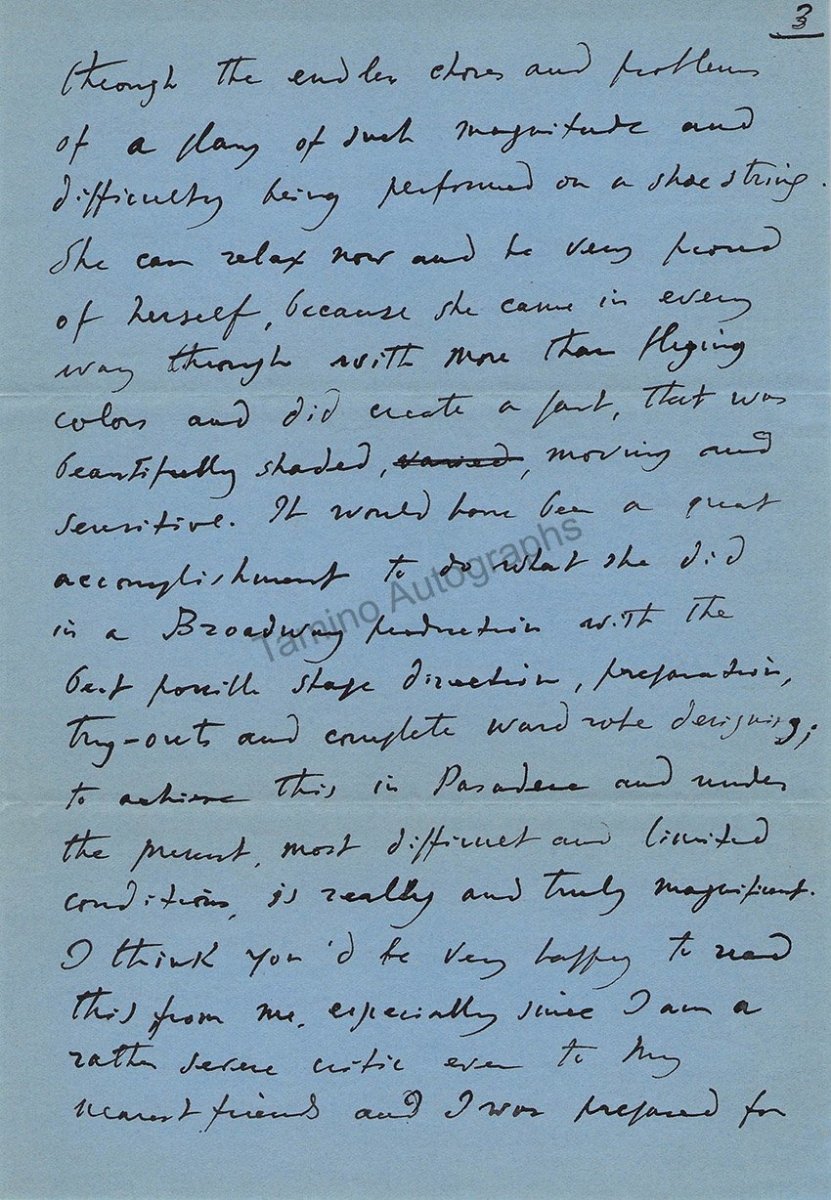 3
through the endless chores and problems
of a play of such magnitude and
difficulty being performed on a shoestring.
She can relax now and be very proud
of herself, because she came in every
way through with more than flying
colors and did create a part, that was
beautifully shaded, varied, moving and
sensitive. It would have been a great
accomplishment to do what she did
in a Broadway production with the
best possible stage direction, preparation,
try-outs and complete wardrobe designing;
to achieve this in Pasadena and under
the present, most difficult and limited
conditions, is really and truly magnificent.
I think you'd be very happy to read
this from me, especially since I am a
rather severe critic even to my
nearest friends and I was prepared for
Tamino Autographs